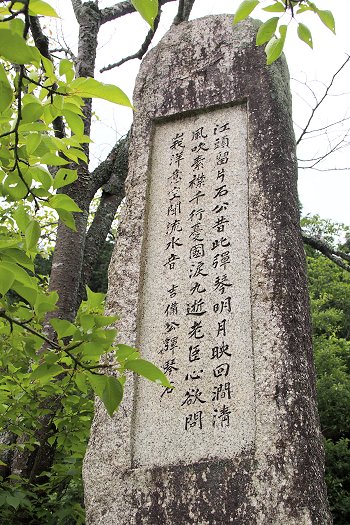 江頭留片石公昔此彈琴明月映回澗清
風吹素襟千行憂國淚九逝老臣心欲問
峩洋意空聞流水音 吉備公彈琴石